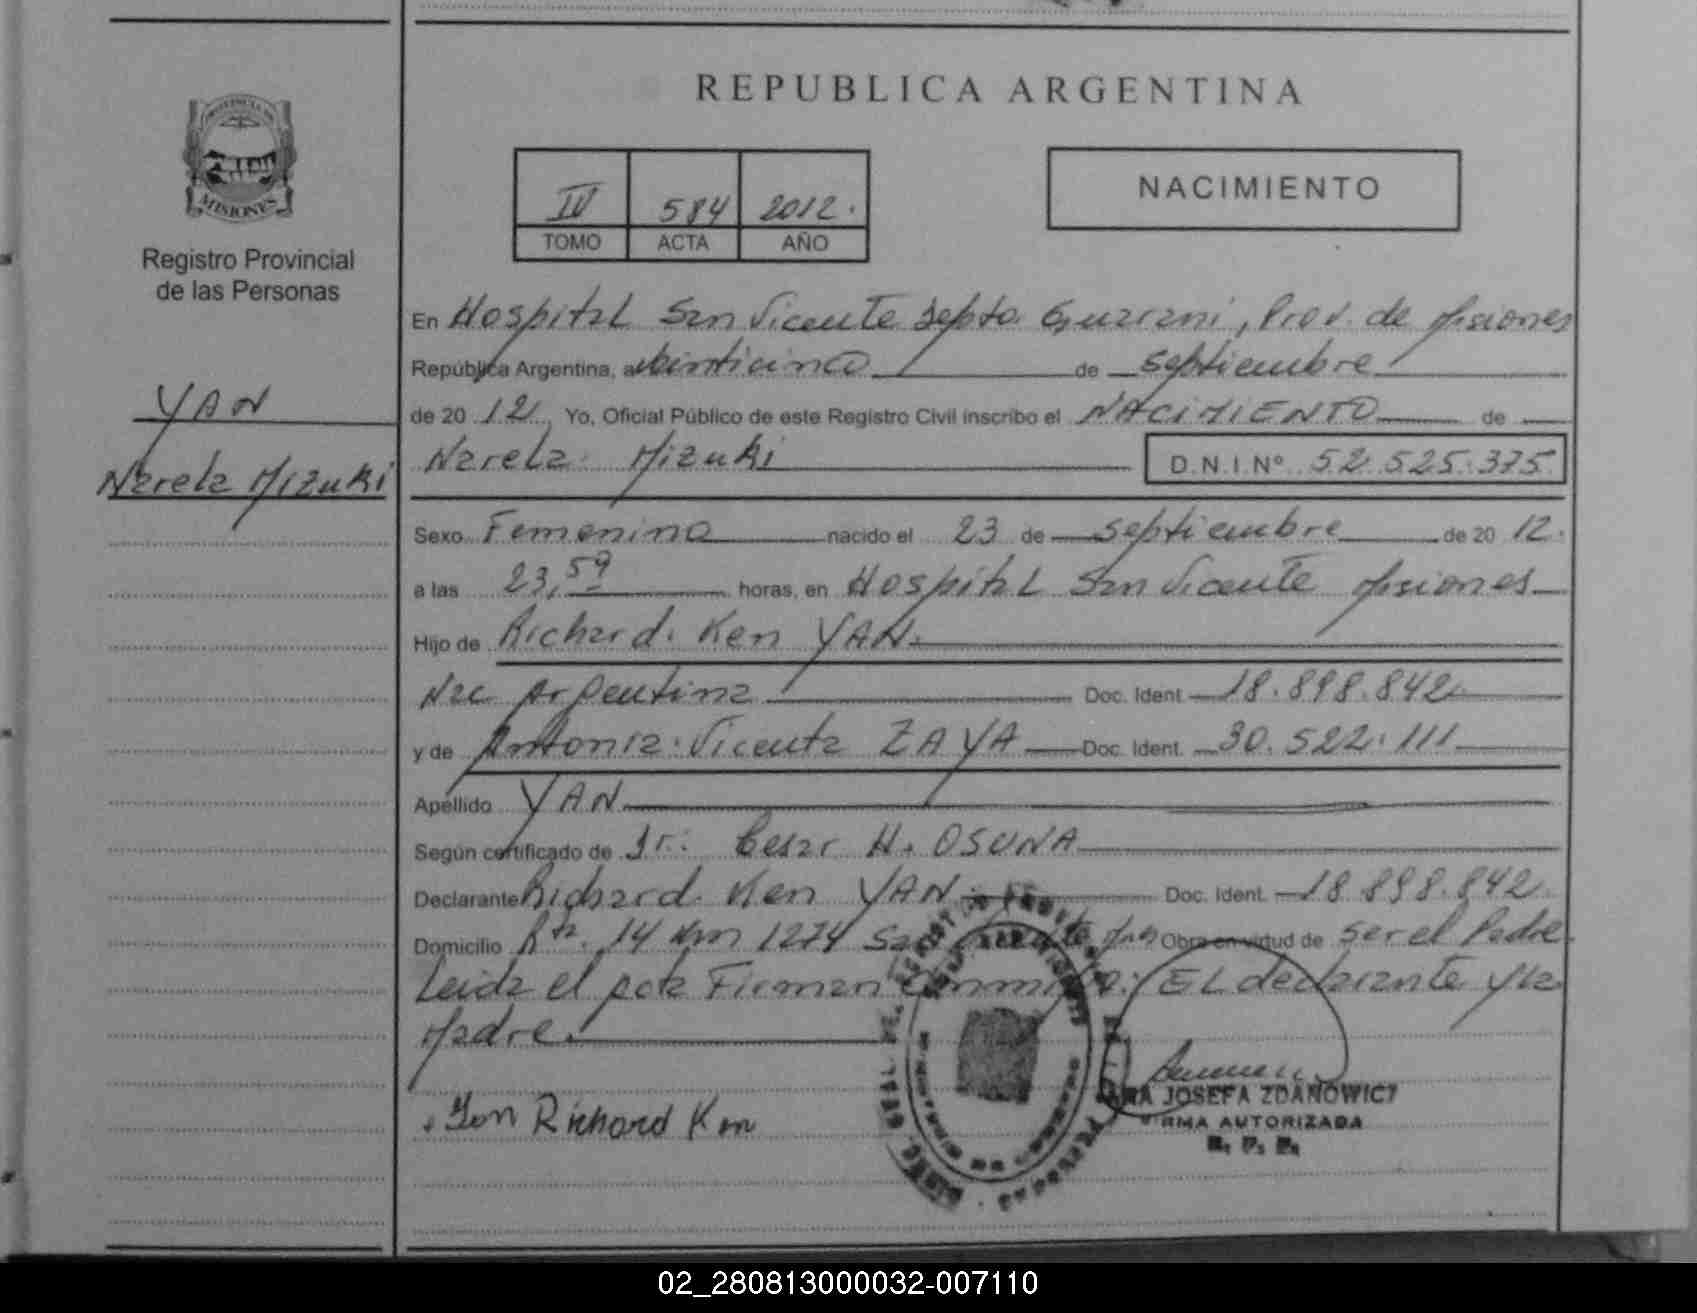 REPUBLICA ARGENTINA
PROVINCIA DE
MISIONES
Registro Provincial
de las Personas
IV 584 2012.
TOMO ACTA AÑO
NACIMIENTO
En Hospital San Vicente Depto Guarani, Prov. de Misiones
República Argentina, a veinticinco de septiembre
de 20 12 Yo, Oficial Público de este Registro Civil inscribo el NACIMIENTO de
YAN
Narela Mizuki
Narela Mizuki D.N.I Nº 52.525.375
Sexo Femenino nacido el 23 de septiembre de 20 12.
a las 23,59 horas, en Hospital San Vicente Misiones
Hijo de Richard Ken YAN
Nac Argentina Doc. Ident. 18.898.842
y de Antonia Vicenta ZAYA Doc. Ident. 30.522.111
Apellido YAN
Según certificado de Dr. Cesar H. OSUNA
Declarante Richard Ken YAN Doc. Ident. 18.898.842
Domicilio Rta. 14 Km 1274 San Vicente Obra en virtud de ser el Padre
Leida el acta Firman Conmigo: EL declarante y la
Madre
Yan Richard Ken
JOSEFA ZDANOWICZ
FIRMA AUTORIZADA
R. P. P.
02_280813000032-007110